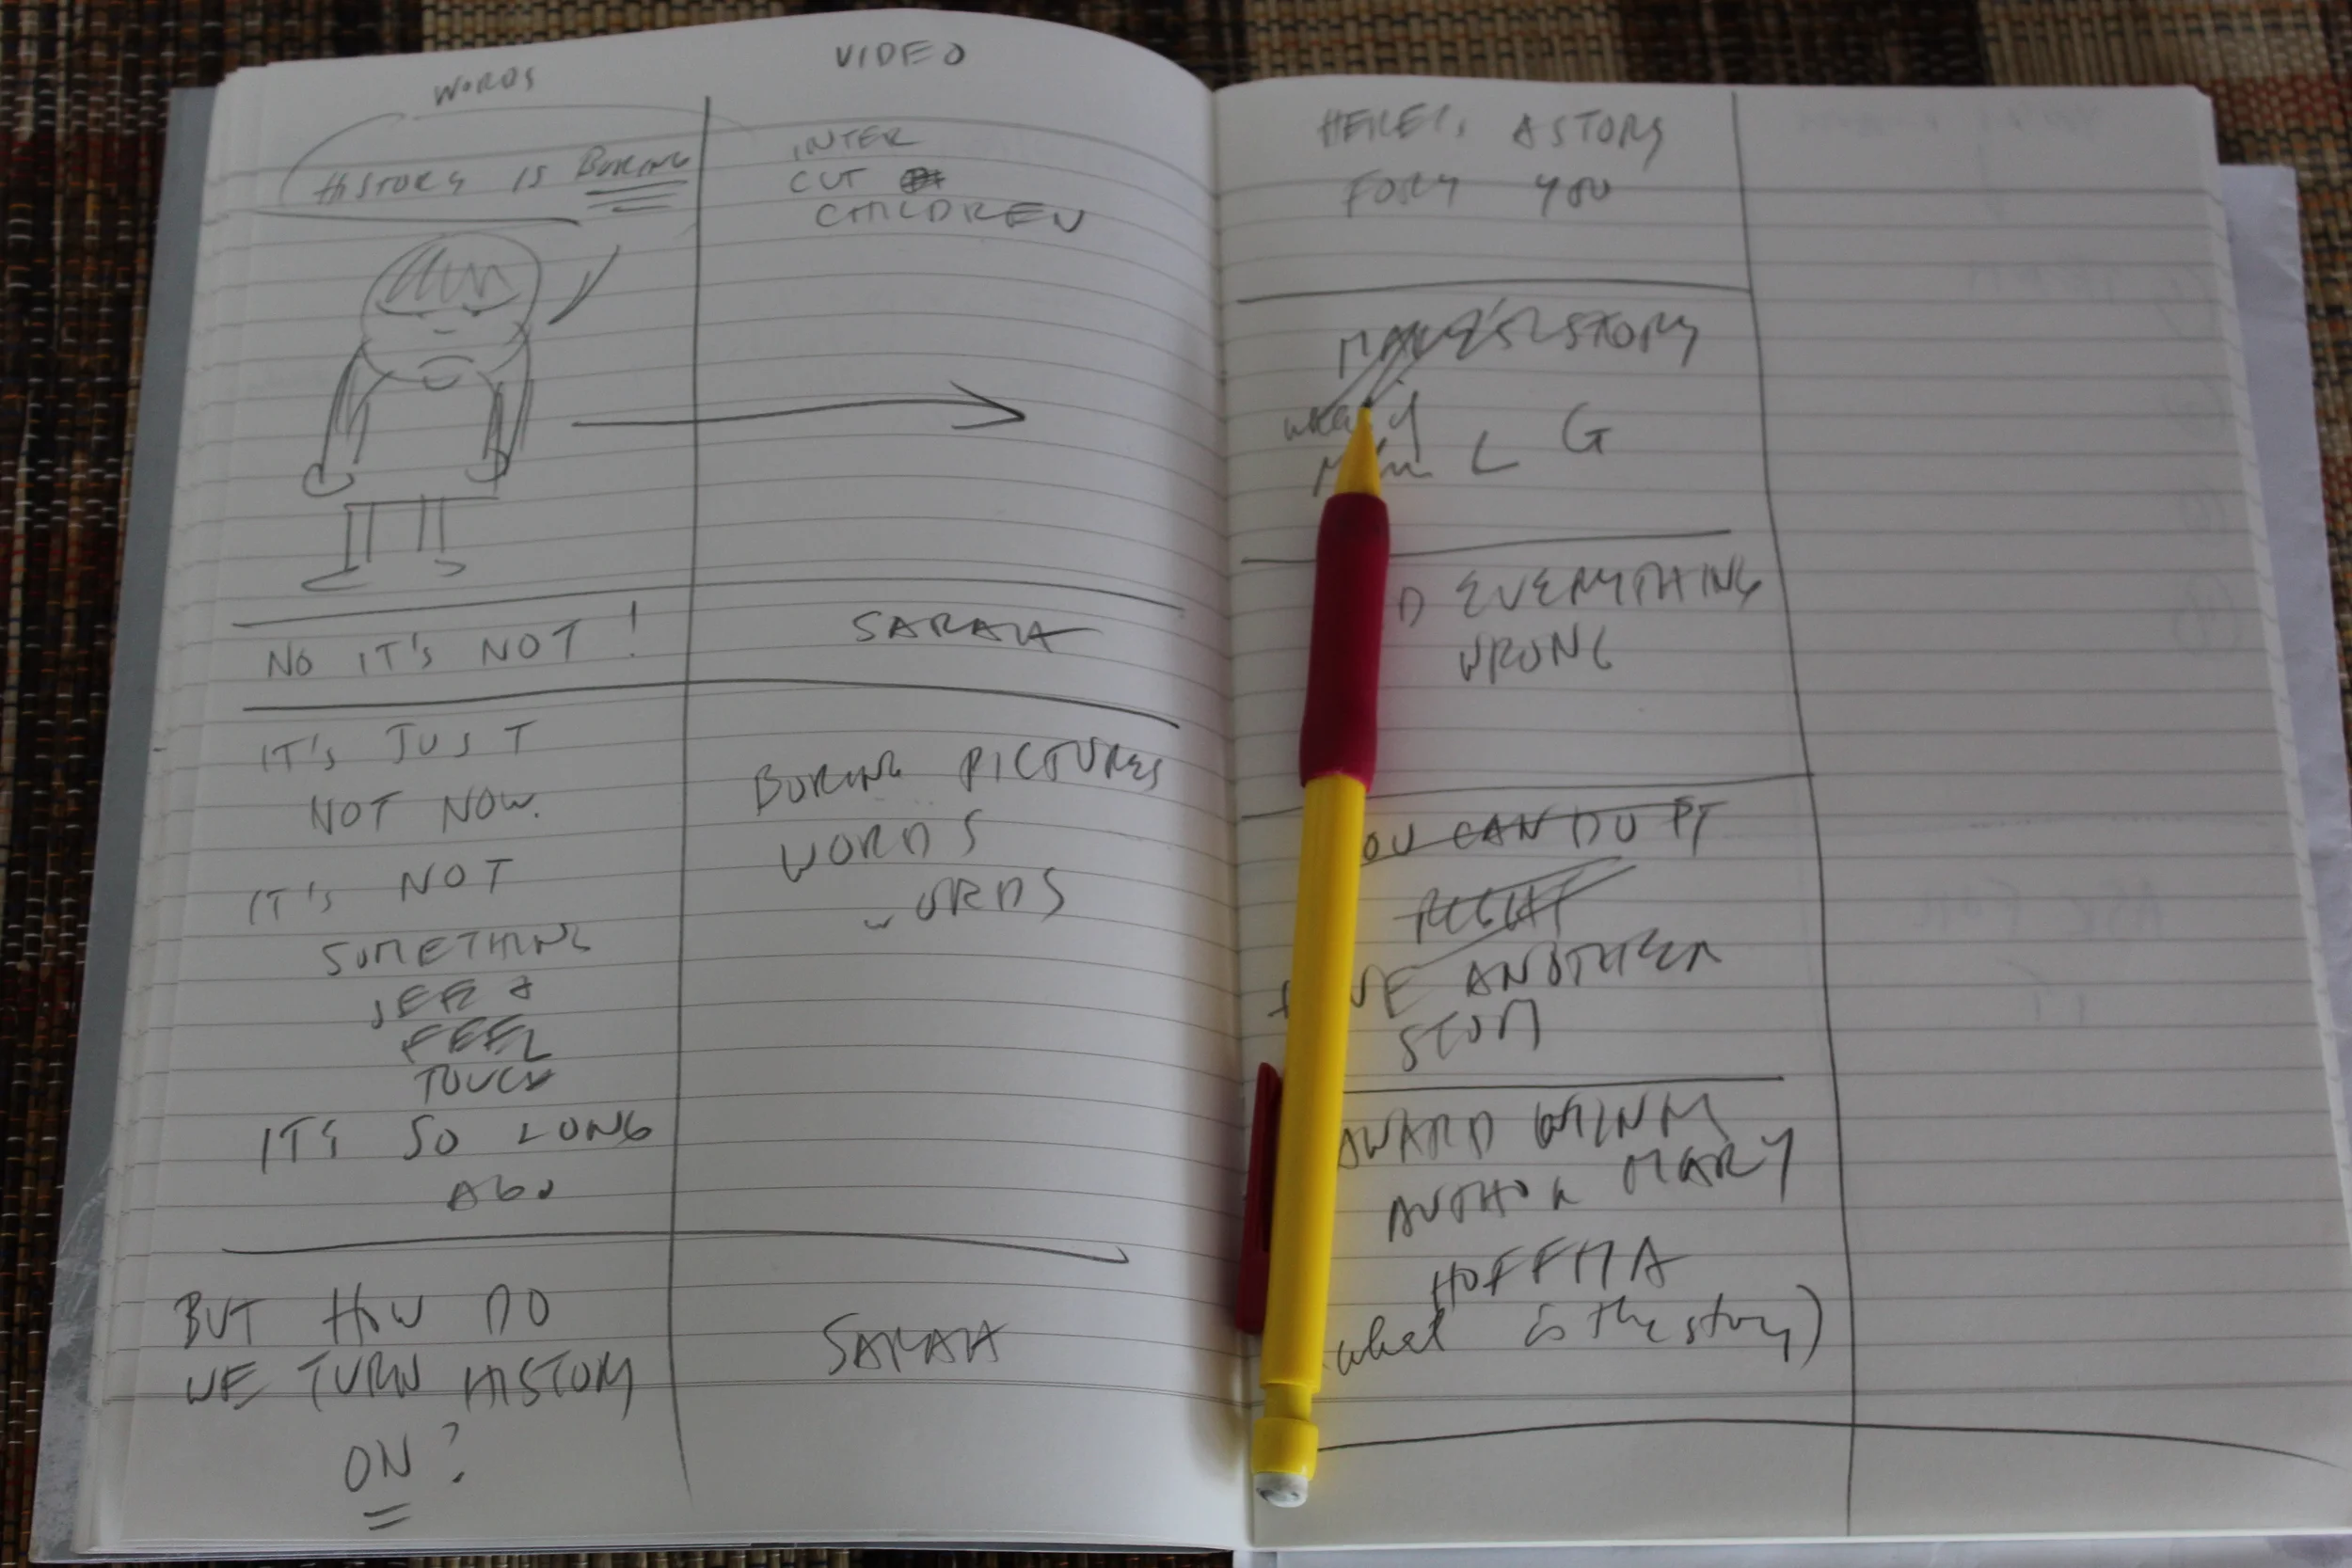 WORDS
VIDEO
HISTORY IS BORING
INTER
CUT
CHILDREN
NO IT'S NOT!
SARAH
IT'S JUST
NOT NOW.
IT'S NOT
SOMETHING
SEE &
FEEL
TOUCH
IT'S SO LONG
AGO
BORING PICTURES
WORDS
WORDS
BUT HOW DO
WE TURN HISTORY
ON?
SARAH
HERE'S A STORY
FOR YOU
STORY
L G
D EVERYTHING
WRONG
OU CAN DO IT
RIGHT
VE ANOTHER
STORY
AWARD WINN
AUTHOR MARY
HOFFMA
what is the story)